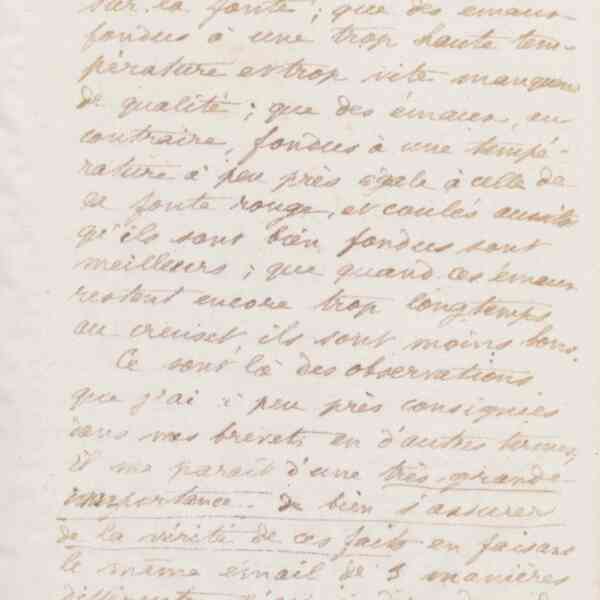 sur la fonte ; que des émaux
fondus à une trop haute tem-
pérature et trop vite manquent
de qualité ; que des émaux, au
contraire, fondus à une tempé-
rature à peu près égale à celle de
la fonte rouge, et coulés aussitôt
qu'ils sont bien fondus sont
meilleurs ; que quand ces émaux
restent encore trop longtemps
au creuset, ils sont moins bons.
Ce sont là des observations
que j'ai à peu près consignées
dans mes brevets en d'autres termes,
Il me parait d'une très grande
importance de bien s'assurer
de la vérité de ces faits en faisant
le même émail de 3 manières
différentes